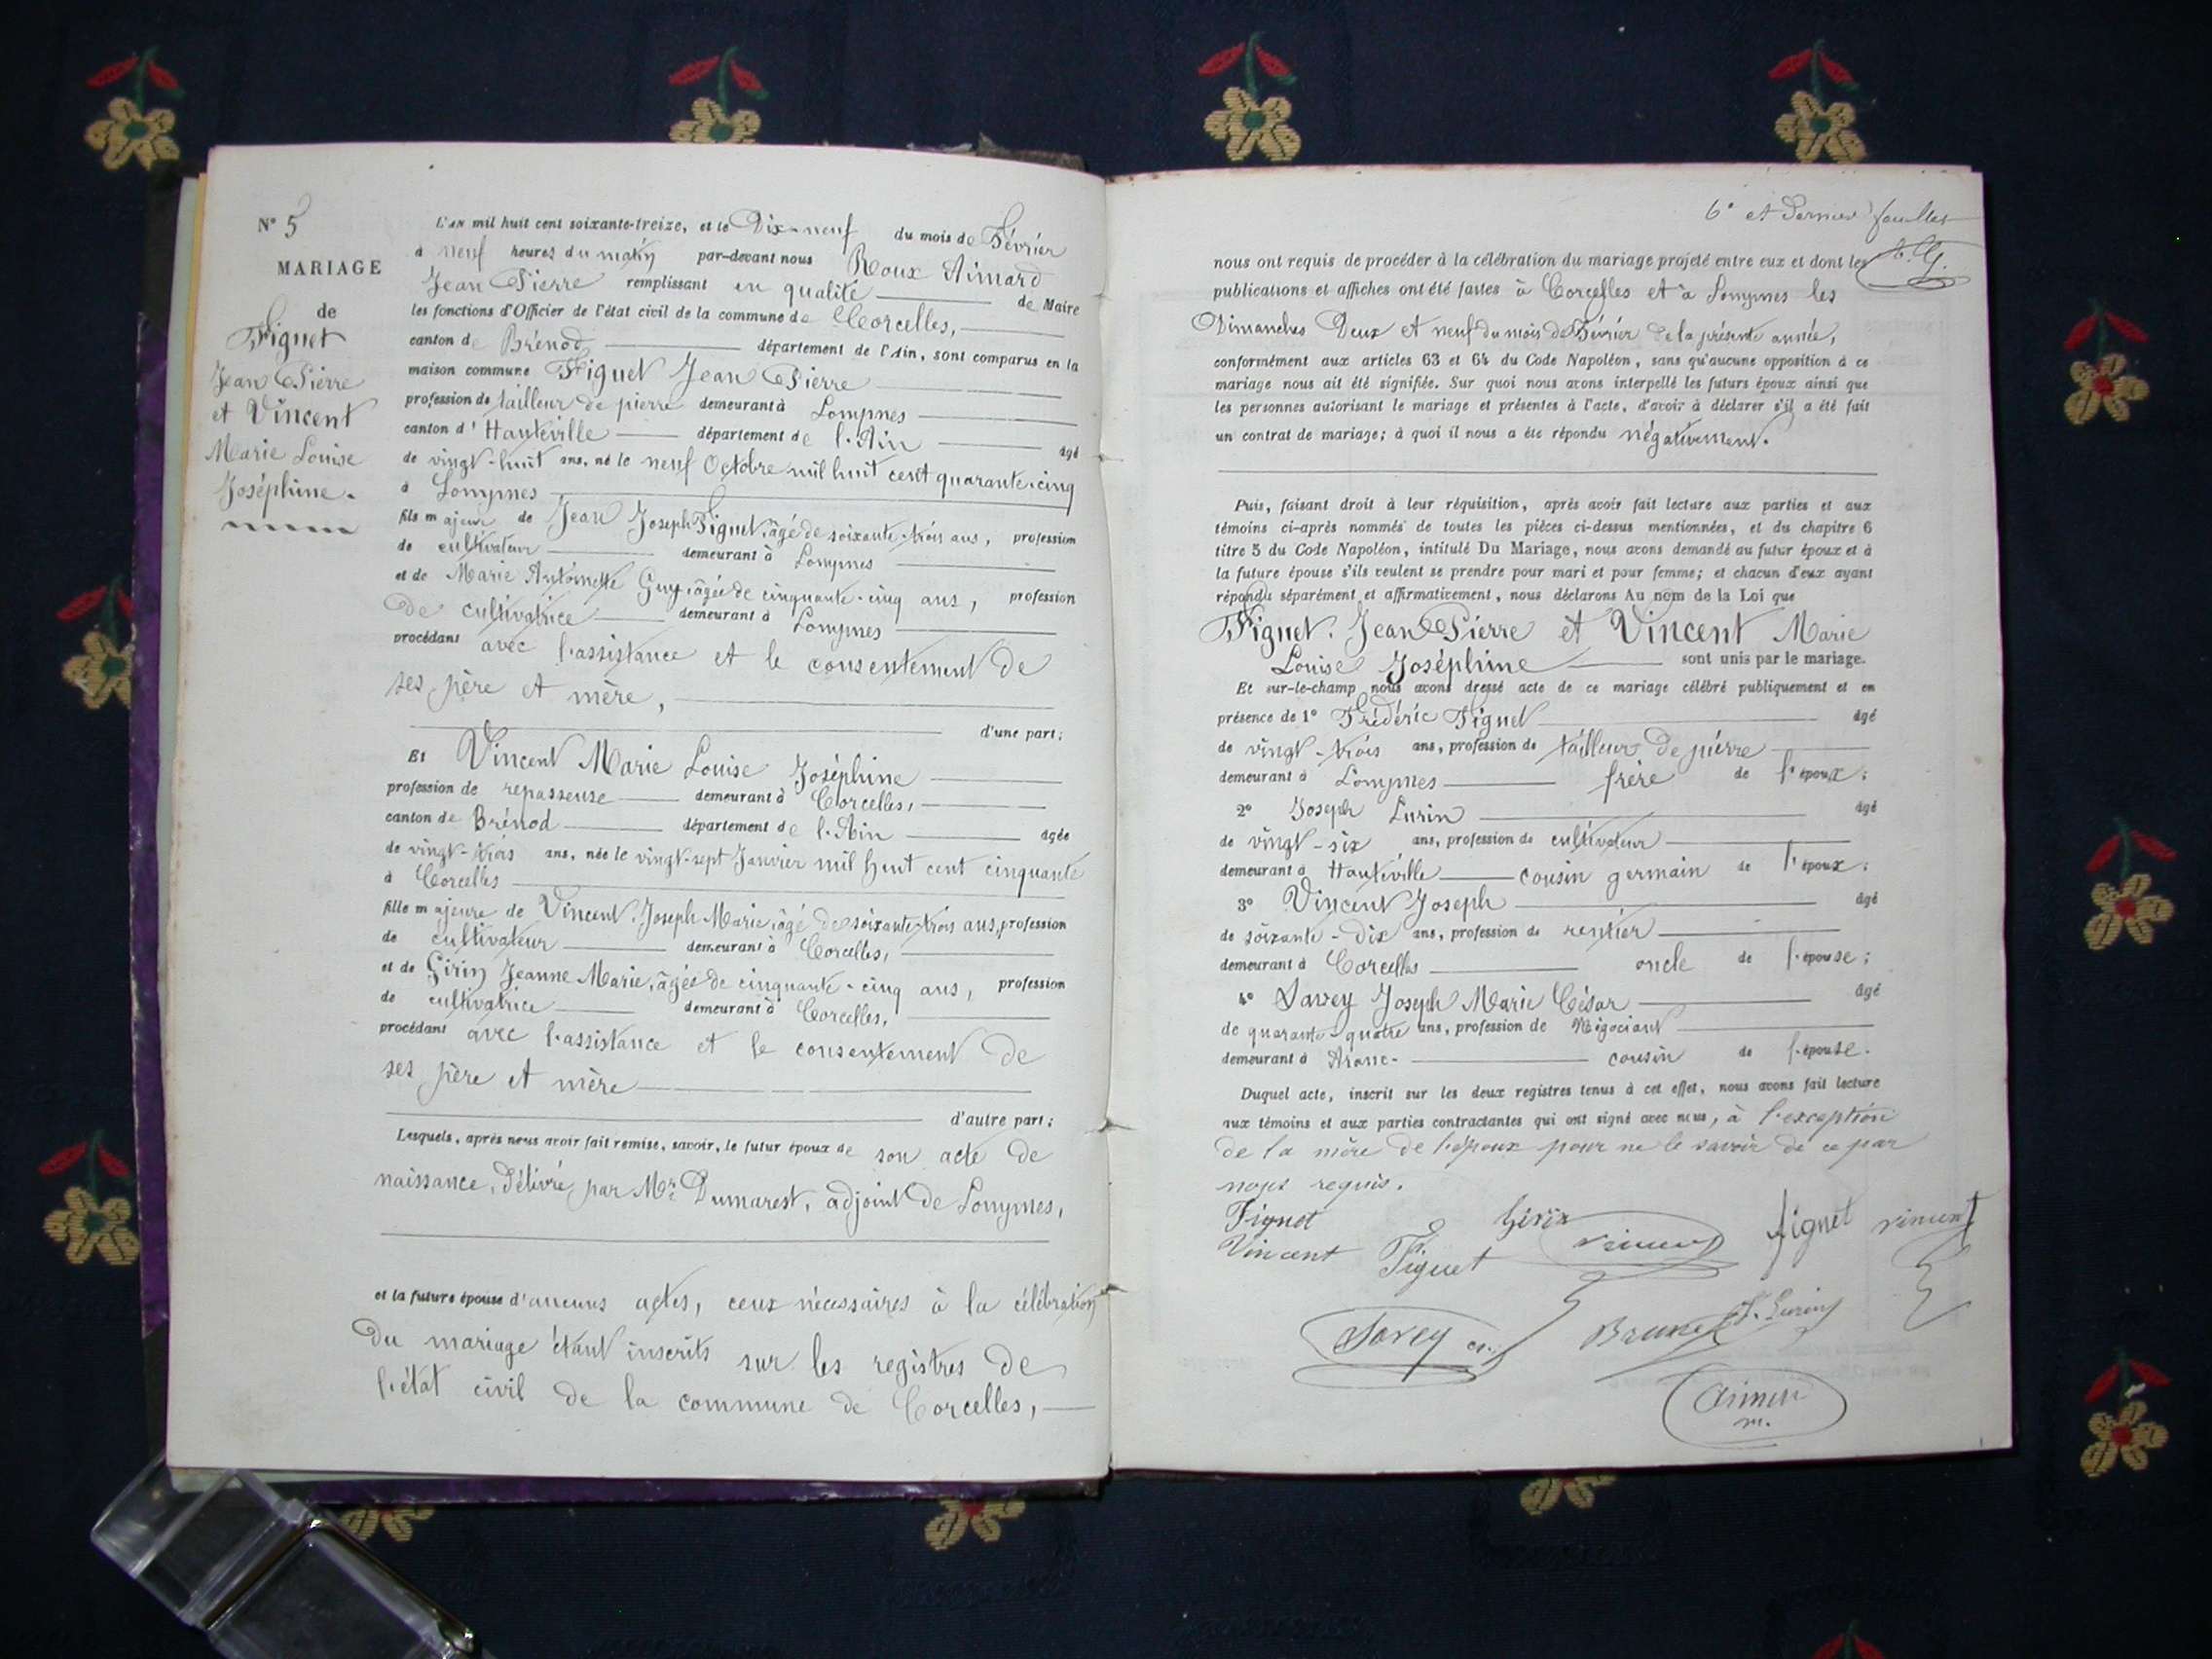 N° 5
MARIAGE
de
Figuet
Jean Pierre
et Vincent
Marie Louise
Joséphine.
L'AN mil huit cent soixante-treize, et le Dix-neuf du mois de Février
à neuf heures du matin par-devant nous Roux Aimard
Jean Pierre remplissant en qualité de Maire
les fonctions d'Officier de l'état civil de la commune de Corcelles,
canton de Brénod département de l'Ain, sont comparus en la
maison commune Figuet Jean Pierre
profession de tailleur de pierre demeurant à Lompnes
canton d'Hauteville département de l'Ain âgé
de vingt-huit ans, né le neuf Octobre mil huit cent quarante-cinq
à Lompnes
fils majeur de Jean Joseph Figuet, âgé de soixante-trois ans, profession
de cultivateur demeurant à Lompnes
et de Marie Antoinette Guy, âgée de cinquante-cinq ans, profession
de cultivatrice demeurant à Lompnes
procédant avec l'assistance et le consentement de
ses père et mère,
d'une part;
Et Vincent Marie Louise Joséphine
profession de repasseuse demeurant à Corcelles,
canton de Brénod département de l'Ain âgée
de vingt-trois ans, née le vingt-sept Janvier mil huit cent cinquante
à Corcelles
fille majeure de Vincent Joseph Marie, âgé de soixante-trois ans, profession
de cultivateur demeurant à Corcelles,
et de Girin Jeanne Marie, âgée de cinquante-cinq ans, profession
de cultivatrice demeurant à Corcelles,
procédant avec l'assistance et le consentement de
ses père et mère
d'autre part;
Lesquels, après nous avoir fait remise, savoir, le futur époux de son acte de
naissance, délivré par Mr Dumarest, adjoint de Lompnes,
et la future épouse d'aucuns actes, ceux nécessaires à la célébration
du mariage étant inscrits sur les registres de
l'état civil de la commune de Corcelles,
6e et Dernier feuillet
nous ont requis de procéder à la célébration du mariage projeté entre eux et dont les
publications et affiches ont été faites à Corcelles et à Lompnes les
Dimanches Deux et neuf du mois de Février de la présente année,
conformément aux articles 63 et 64 du Code Napoléon, sans qu'aucune opposition à ce
mariage nous ait été signifiée. Sur quoi nous avons interpellé les futurs époux ainsi que
les personnes autorisant le mariage et présentes à l'acte, d'avoir à déclarer s'il a été fait
un contrat de mariage; à quoi il nous a été répondu négativement.
Puis, faisant droit à leur réquisition, après avoir fait lecture aux parties et aux
témoins ci-après nommés de toutes les pièces ci-dessus mentionnées, et du chapitre 6
titre 5 du Code Napoléon, intitulé Du Mariage, nous avons demandé au futur époux et à
la future épouse s'ils veulent se prendre pour mari et pour femme; et chacun d'eux ayant
répondu séparément et affirmativement, nous déclarons Au nom de la Loi que
Figuet Jean Pierre et Vincent Marie
Louise Joséphine sont unis par le mariage.
Et sur-le-champ nous avons dressé acte de ce mariage célébré publiquement et en
présence de 1° Frédéric Figuet âgé
de vingt-trois ans, profession de tailleur de pierre
demeurant à Lompnes frère de l'époux;
2° Joseph Lurin âgé
de vingt-six ans, profession de cultivateur
demeurant à Hauteville cousin germain de l'époux;
3° Vincent Joseph âgé
de soixante-dix ans, profession de rentier
demeurant à Corcelles oncle de l'épouse;
4° Savey Joseph Marie César âgé
de quarante-quatre ans, profession de Négociant
demeurant à Aranc cousin de l'épouse.
Duquel acte, inscrit sur les deux registres tenus à cet effet, nous avons fait lecture
aux témoins et aux parties contractantes qui ont signé avec nous, à l'exception
de la mère de l'époux pour ne le savoir de ce par
nous requis.
Figuet Girin Vincent figuet vincent
Vincent Figuet
Savey Brunet J. Lurin
Aimard
m.